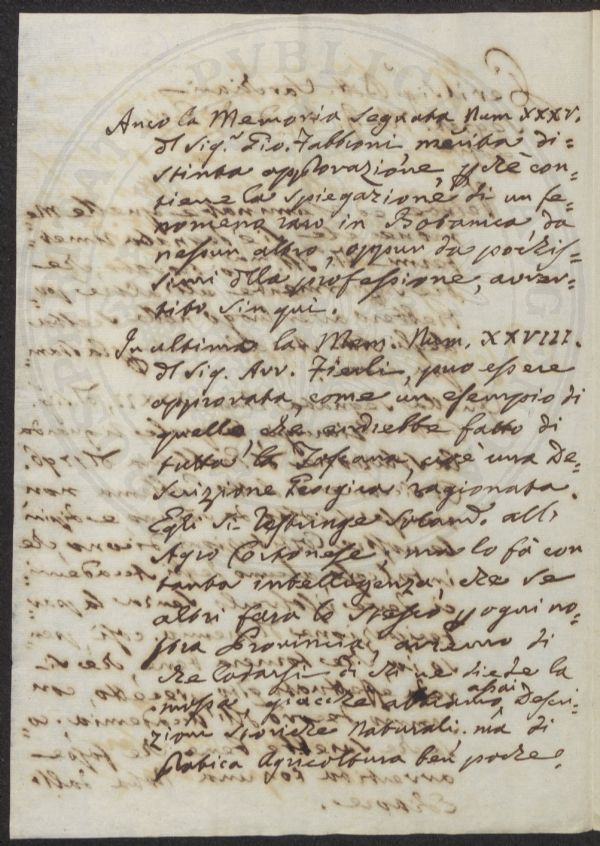 Anco la Memoria segnata Num. XXXV.
dl Sig.r Gio. Fabbroni merita di-
stinta approvazione, pchè con-
tiene la spiegazione di un fe-
nomeno raro in Botanica, da
nessun altro, oppur da pochis-
simi dlla professione, avver-
tito sin qui.
In ultimo la Mem. Num. XXVIII.
dl Sig. Avv. Fierli, può essere
approvata, come un esempio di
quello, che andrebbe fatto di
tutta la Toscana, cioè una De-
scrizione Georgica ragionata.
Egli si restringe soland. all'
Agro Cortonese; ma lo fà con
tanta intelligenza, che se
altri farà lo stesso p ogni no-
stra Provincia, avremo di
che lodarsi di chi ne diede la
mossa, giacchè abbiamo assai Descri-
zioni storiche Naturali. mà di
pratica Agricoltura ben poche.